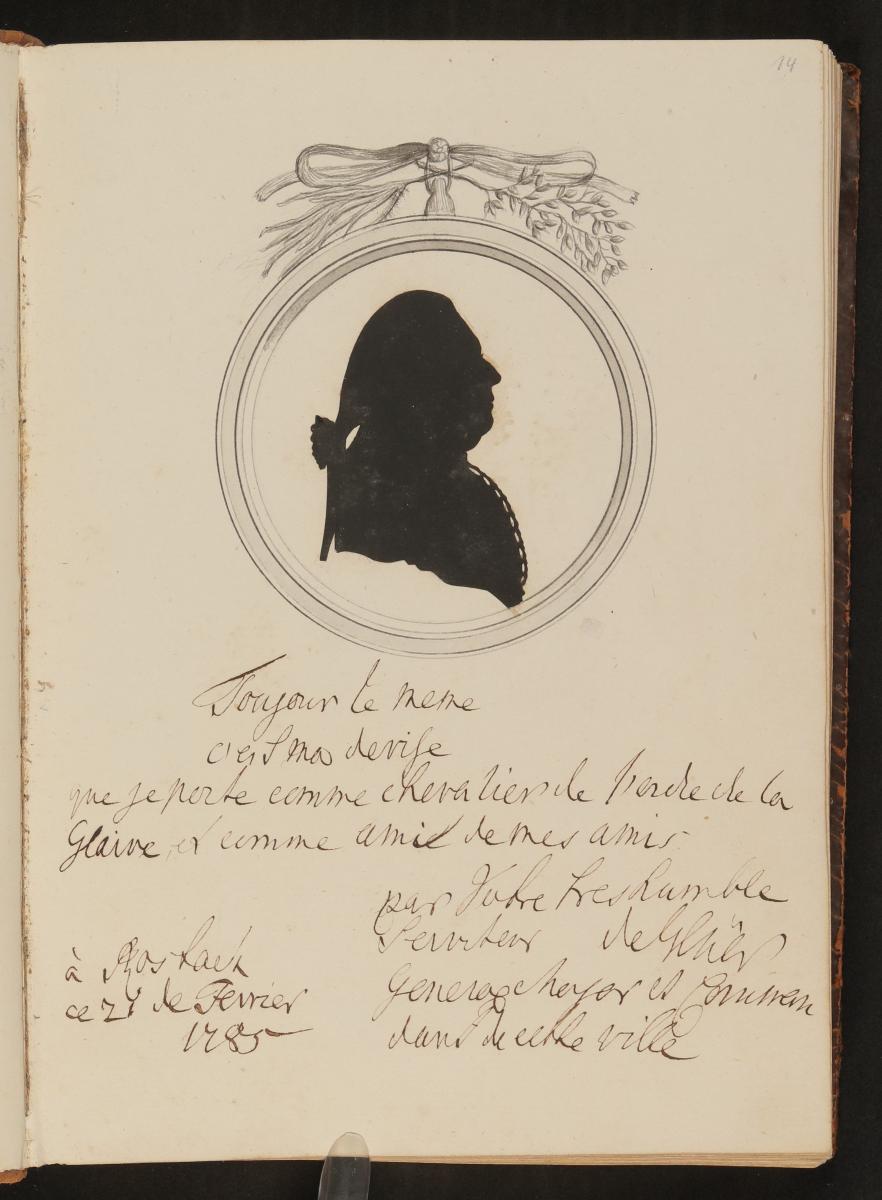 14
Toujour le meme
c'est ma devise
que je porte comme chevalier de l'ordre de la
Glaive, et comme ami de mes amis
par Votre tres humble
Serviteur de
à Rostock
Generage Mayor et Comman
ce 27 de Fevrier
dant de cette ville
1785